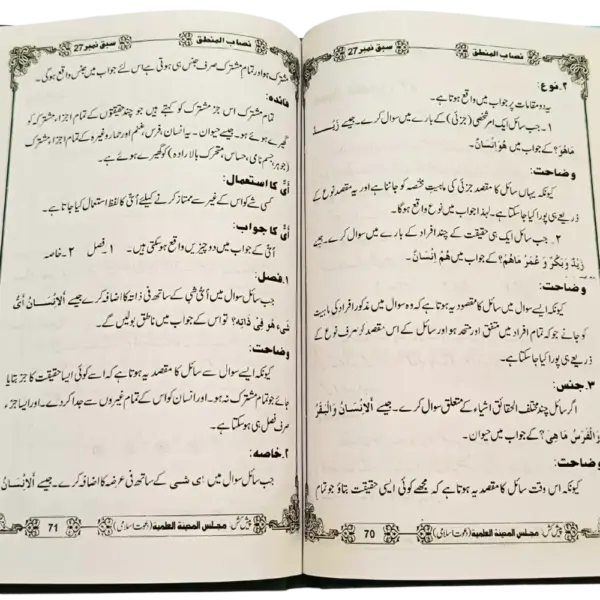 نصاب المنطق
سبق نمبر 27
۲۔نوع:
یہ دو مقامات پر جواب میں واقع ہوتا ہے۔
۱۔ جب سائل ایک امر شخصی (جزئی) کے بارے میں سوال کرے۔ جیسے زَیْدٌ
مَاهُوَ؟ کے جواب میں هُوَ اِنْسَانٌ۔
وضاحت:
کیونکہ یہاں سائل کا مقصد جزئی کی ماہیتِ مختصہ کو جاننا ہے اور یہ مقصد نوع کے
ذریعے ہی پورا کیا جاسکتا ہے۔ لہٰذا جواب میں نوع واقع ہوگا۔
۲۔ جب سائل ایک ہی حقیقت کے چند افراد کے بارے میں سوال کرے۔ جیسے
زَیْدٌ وَبَکْرٌ وَ عُمَرُ مَاهُمْ؟ کے جواب میں هُمْ اِنْسَانٌ۔
وضاحت:
کیونکہ ایسے سوال میں سائل کا مقصود یہ ہوتا ہے کہ وہ سوال میں مذکور افراد کی ماہیت
کو جانے جو کہ تمام افراد میں متفق اور متحد ہو اور سائل کے اس مقصد کو صرف نوع کے
ذریعے ہی پورا کیا جاسکتا ہے۔
۳۔جنس:
اگر سائل چند مختلف الحقائق اشیاء کے متعلق سوال کرے۔ جیسے اَلْاِنْسَانُ وَالْبَقَرُ
وَالْفَرَسُ مَا هِیَ؟ کے جواب میں حیوان۔
وضاحت:
کیونکہ اس وقت سائل کا مقصد یہ ہوتا ہے کہ مجھے کوئی ایسی حقیقت بتاؤ جو تمام
پیش کش: مجلس المدینة العلمیة (دعوتِ اسلامی)
70
نصاب المنطق
سبق نمبر 27
مشترک ہو اور تمام مشترک صرف جنس ہی ہوتی ہے اس لئے جواب میں جنس واقع ہوگی۔
فائدہ:
تمام مشترک اس جزِ مشترک کو کہتے ہیں جو چند حقیقتوں کے تمام اجزاء مشترکہ کو
گھیرے ہوئے ہو۔ جیسے حیوان۔ یہ انسان، فرس، غنم اور حمار وغیرہ کے تمام اجزاء مشترکہ
(جوہر، جسم نامی، حساس، متحرک بالارادہ) کو گھیرے ہوئے ہے۔
اَیُّ کا استعمال:
کسی شے کو اس کے غیر سے ممتاز کرنے کیلئے اَیُّ کا لفظ استعمال کیا جاتا ہے۔
اَیُّ کا جواب:
اَیُّ کے جواب میں دو چیزیں واقع ہوسکتی ہیں۔ ۱۔ فصل ۲۔ خاصہ
۱۔فصل:
جب سائل سوال میں اَیُّ شَیْءٍ کے ساتھ فی ذاتہ کا اضافہ کرے جیسے اَلْاِنْسَانُ اَیُّ
شَیْءٍ هُوَ فِیْ ذَاتِهٖ؟ تو اس کے جواب میں ناطق بولیں گے۔
وضاحت:
کیونکہ ایسے سوال سے سائل کا مقصد یہ ہوتا ہے کہ اسے کوئی ایسا حقیقت کا جز بتایا
جائے جو تمام مشترک نہ ہو۔ اور انسان کو اس کے تمام غیروں سے جدا کردے۔ اور ایسا جزء
صرف فصل ہی ہوسکتا ہے۔
۲۔خاصہ:
جب سائل سوال میں اَیُّ شَیْءٍ کے ساتھ فی عرضہ کا اضافہ کرے۔ جیسے اَلْاِنْسَانُ
پیش کش: مجلس المدینة العلمیة (دعوتِ اسلامی)
71